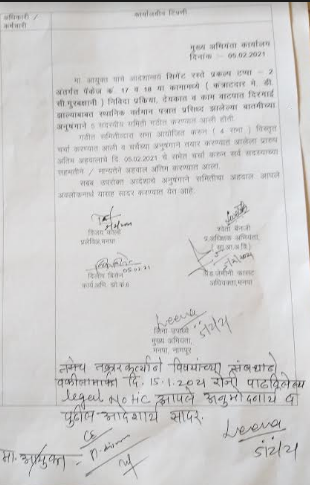 अधिकारी /
कर्मचारी
कार्यालयीन टिपणी
मुख्य अभियंता कार्यालय
दिनांक :- 05.02.2021
मा. आयुक्त यांचे आदेशान्वये सिमेंट रस्ते प्रकल्प टप्पा - 2
अंतर्गत पॅकेज क्रं. 17 व 18 या कामामध्ये ( कंत्राटदार मे. डी.
सी.गुरबक्षानी ) निविदा प्रक्रिया, देयकात व काम वाटपात दिरंगाई
झाल्याबाबत स्थानिक वर्तमान पत्रात प्रसिध्द झालेल्या बातमीच्या
अनुषंगाने सदस्यीय समिती गठीत करण्यात आली होती.
गठीत समितीव्दारा सभा आयोजित करून ( 4 सभा ) विस्तृत
चर्चा करण्यात आली व चर्चेच्या अनुषंगाने तयार करण्यात आलेला प्रारूप
अंतिम अहवालाचे दि. 05.02.2021 चे सभेत चर्चा करून सर्व सदस्यांच्या
सहमतीने / मान्यतेने अहवाल अंतिम करण्यात आला.
सबब उपरोक्त आदेशाचे अनुषंगाने समितीचा अहवाल आपले
अवलोकनार्थ सादर करण्यात येत आहे.
मनपा
श्वेता बॅनर्जी
प्र.अधिक्षक अभियंता,
05.02.21
कार्य.अभि.
मनपा.
लिना उपाध्ये
मुख्य अभियंता,
मनपा, नागपुर
Leena
5/2/21
तसेच तक्रारकर्त्याने विषयांच्या संबंधाने
वकीलामार्फत दि. 15.1.2021 रोजी पाठविलेल्या
legal आपले अनुमोदनार्थ व
पुढील आदेशार्थ सादर.
Leena
5/2/21
मा. आयुक्त
CE